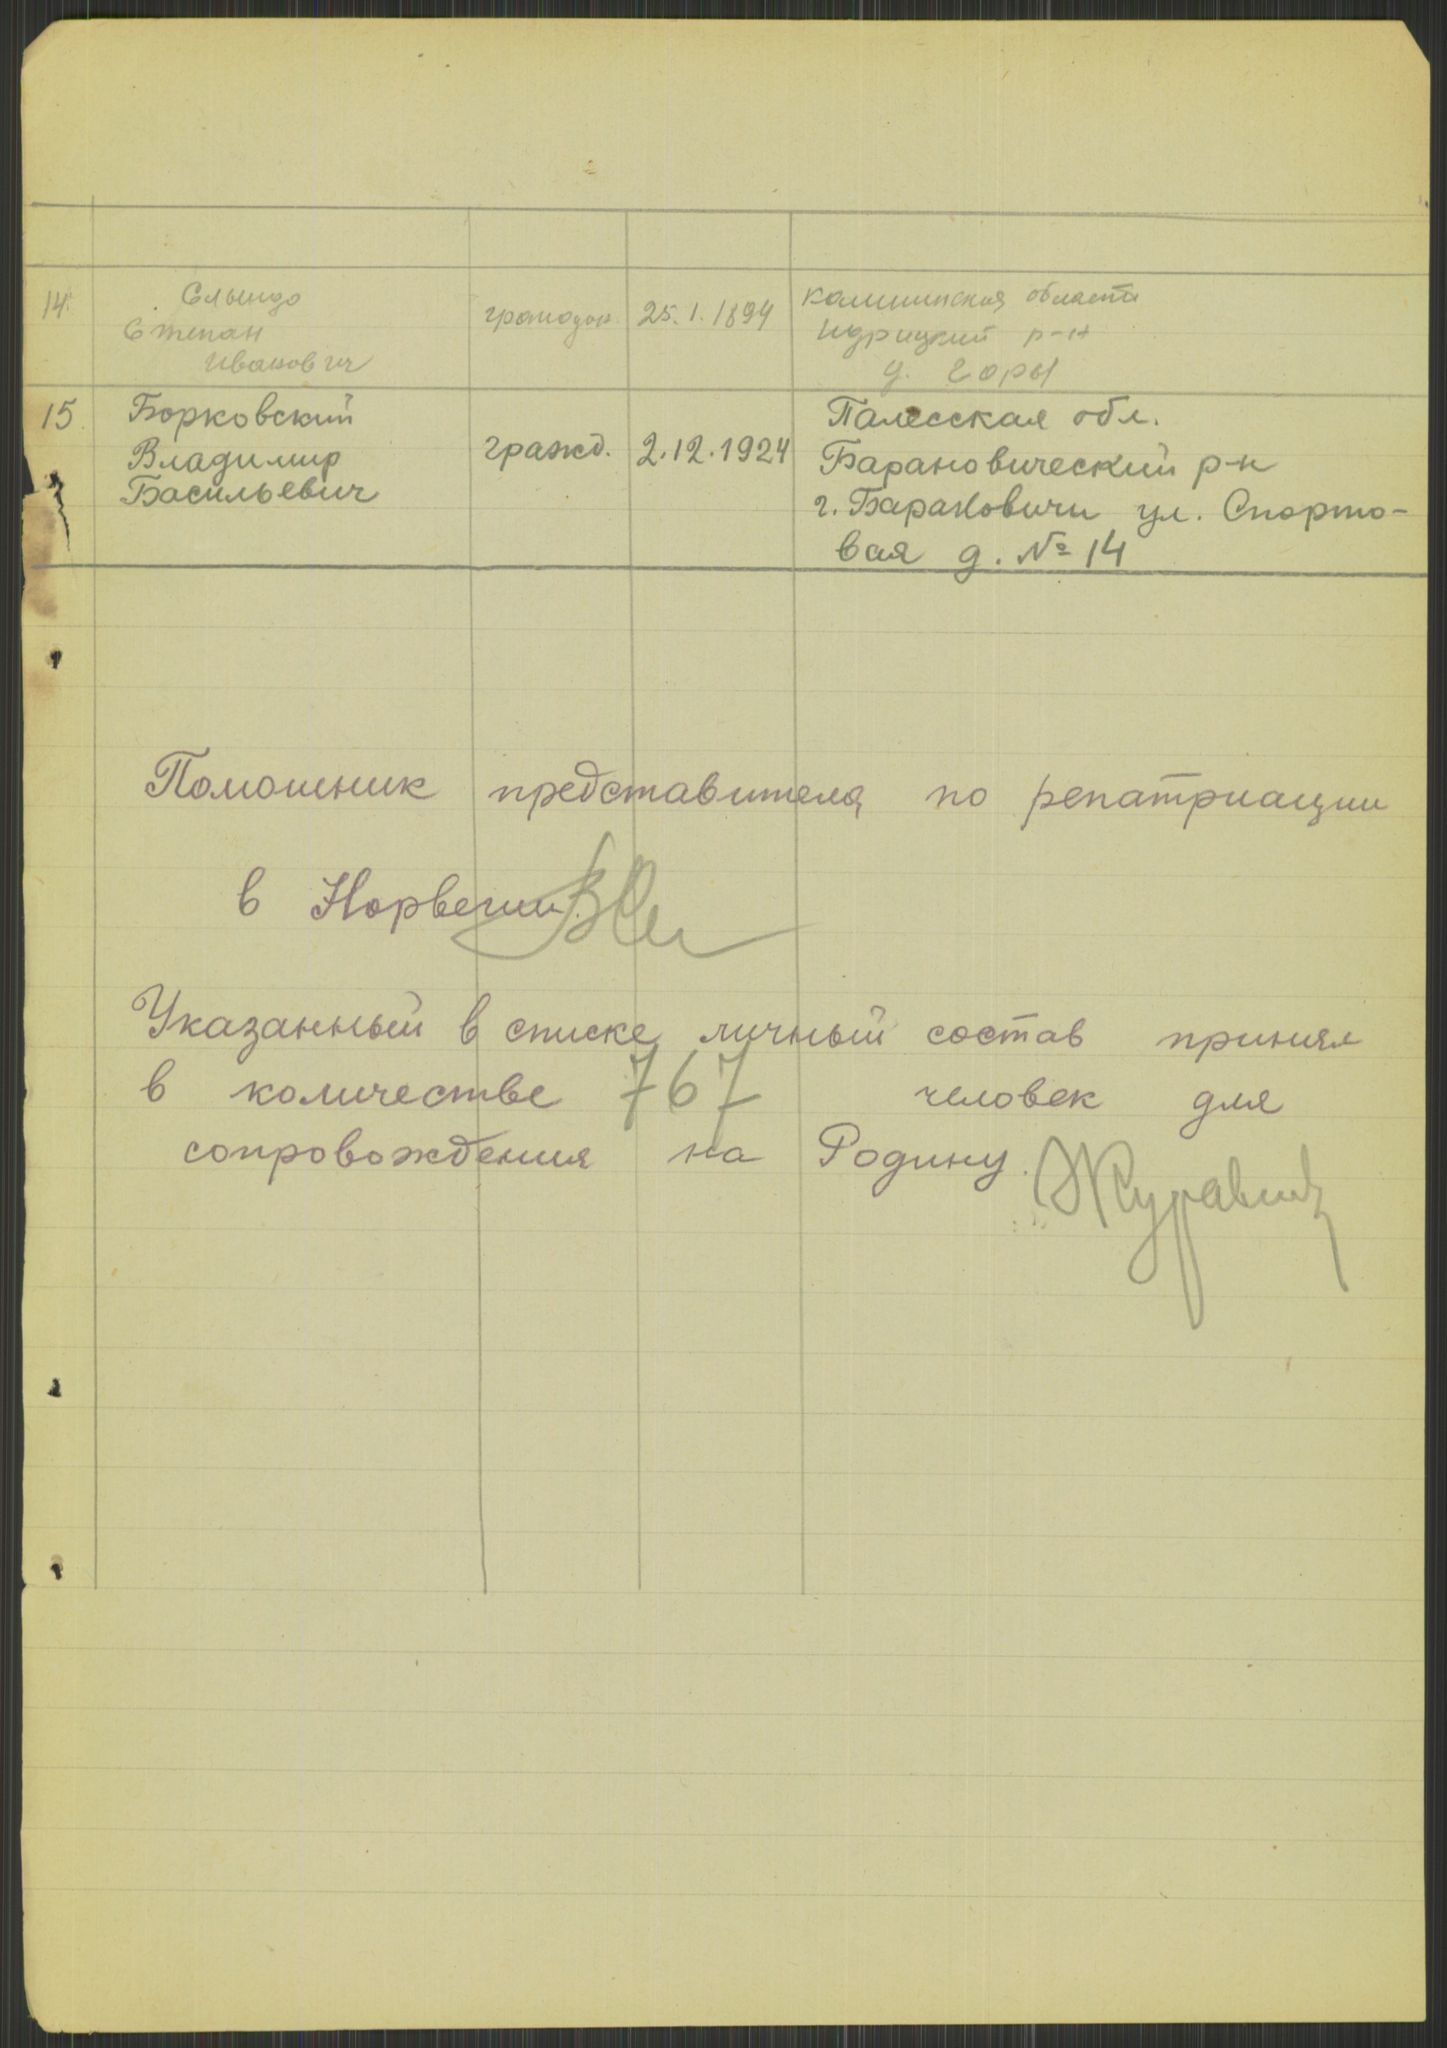 14. Елындо
Степан
Иванович
граждан. 25.1.1894
Калининская области
Идрицкий р-н
д. Горы
15. Борковский
Владимир
Васильевич
гражд. 2.12.1924
Палесская обл.
Барановический р-н
г. Барановичи ул. Спорто-
вая д. № 14
Помошник представителя по репатриации
в Норвегии.
Указанный в списке личный состав принял
в количестве 767 человек для
сопровождения на Родину.